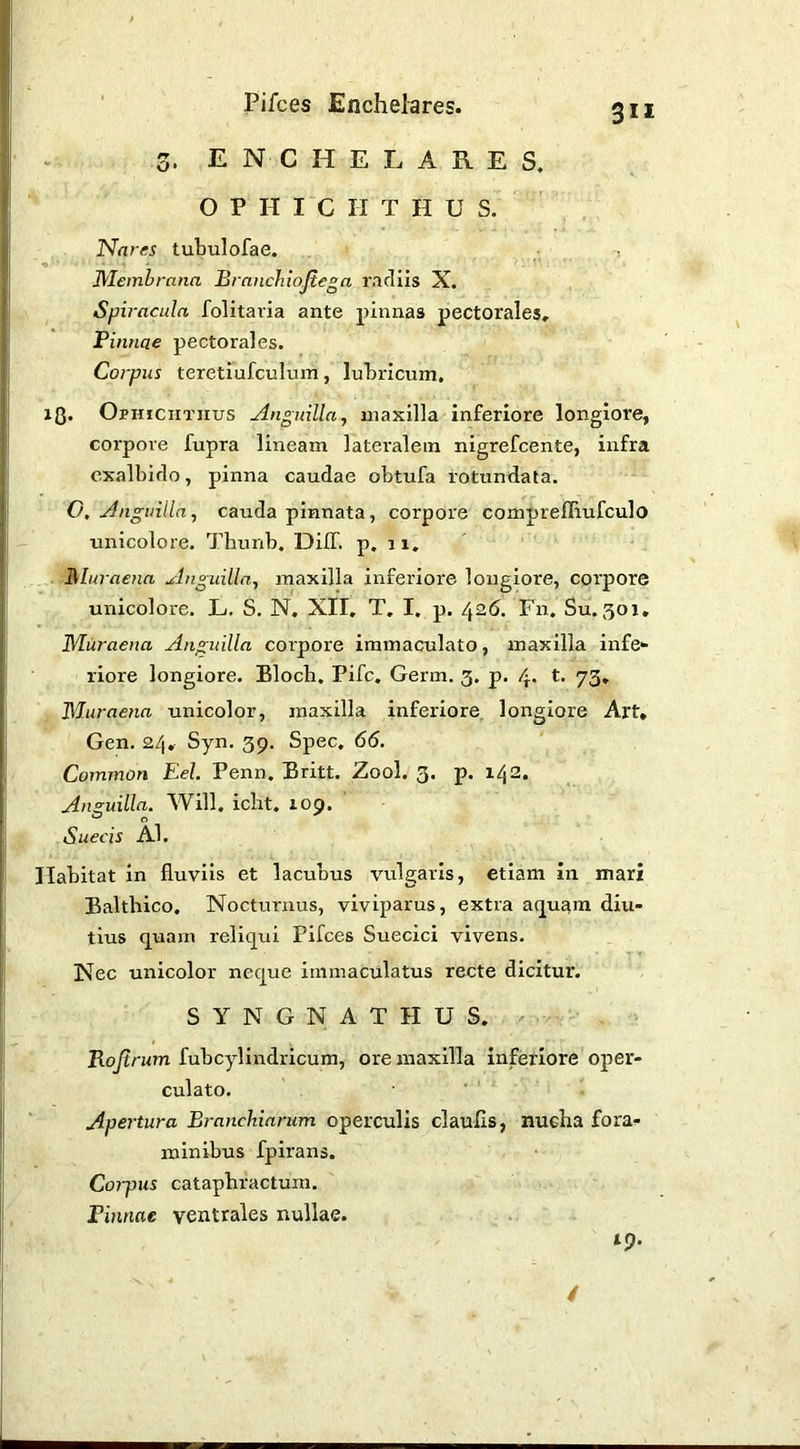 Pifces Enchelares.
311
3. ENCHELARES.
OPHICHTHUS.
Nares tubulofae.
Membrana Branchioftega radiis X.
Spiracula folitaria ante pinnas pectorales.
Pinnae pectorales.
Corpus teretiufculum, lubricum.
18. OPHICHTHUS Anguilla, maxilla inferiore longiore,
corpore fupra lineam lateralem nigrefcente, infra
exalbido, pinna caudae obtufa rotundata.
O. Anguilla, cauda pinnata, corpore compreffiufculo
unicolore. Thunb. Diff. p. 11.
Muraena Anguilla, maxilla inferiore longiore, corpore
unicolore. L. S. N. XII. T. I. p. 426. Fn. Su. 301.
Muraena Anguilla corpore immaculato, maxilla infe-
riore longiore. Bloch. Pifc. Germ. 3. p. 4. t. 73.
Muraena unicolor, maxilla inferiore longiore Art.
Gen. 24. Syn. 39. Spec. 66.
Common Eel. Penn. Britt. Zool. 3. p. 142.
Anguilla. Will. icht. 109.
Suecis Ål.
Habitat in fluviis et lacubus vulgaris, etiam in mari
Balthico. Nocturnus, viviparus, extra aquam diu-
tius quam reliqui Pifces Suecici vivens.
Nec unicolor neque immaculatus recte dicitur.
SYNGNATHUS.
Roftrum fubcylindricum, ore maxilla inferiore oper-
culato.
Apertura Branchiarum operculis claufis, nucha fora-
minibus fpirans.
Corpus cataphractum.
Pinnae ventrales nullae.
19.